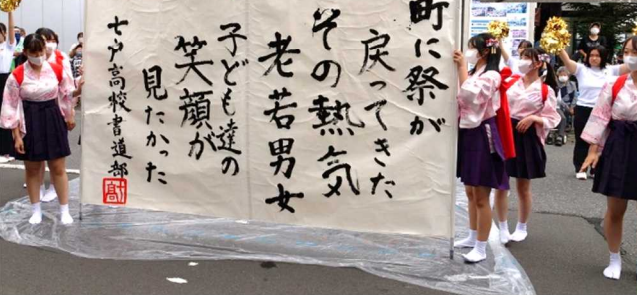 町に祭が
戻ってきた
その熱気
老若男女
子ども達の
笑顔が
見たかった
七戸高校書道部